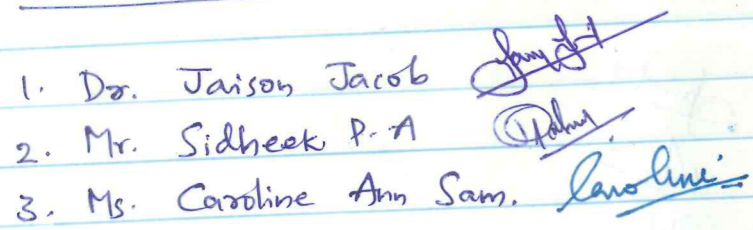 1. Dr. Jaison Jacob
2. Mr. Sidheek P. A
3. Ms. Caroline Ann Sam. Caroline